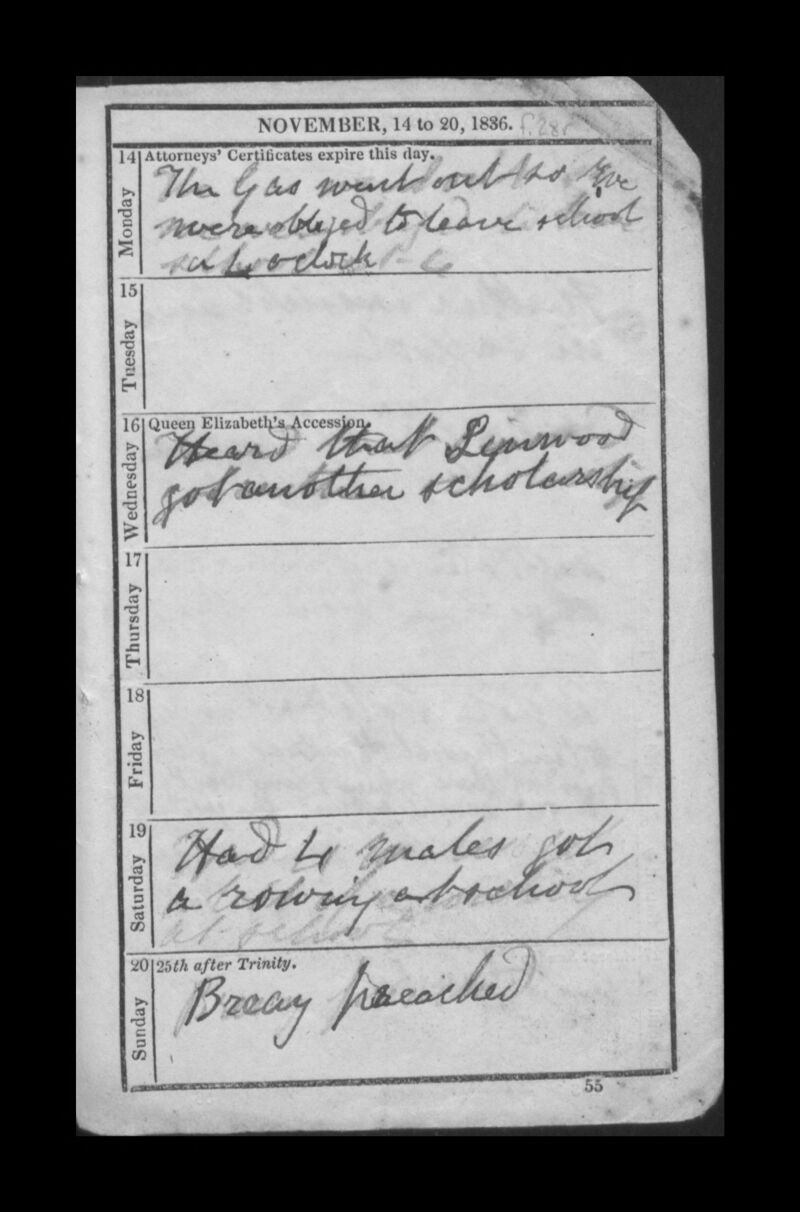 NOVEMBER, 14 to 20, 1836. f.28r
14 Attorneys' Certificates expire this day.
Monday
The Gas went out so we
were obliged to leave school
at 4 oclock
15
Tuesday
16 Queen Elizabeth's Accession.
Wednesday
Heard that Linwood
got another scholarship
17
Thursday
18
Friday
19
Saturday
Had 4 males got
a rowing at school
at school
20 25th after Trinity.
Sunday
Breay preached
55